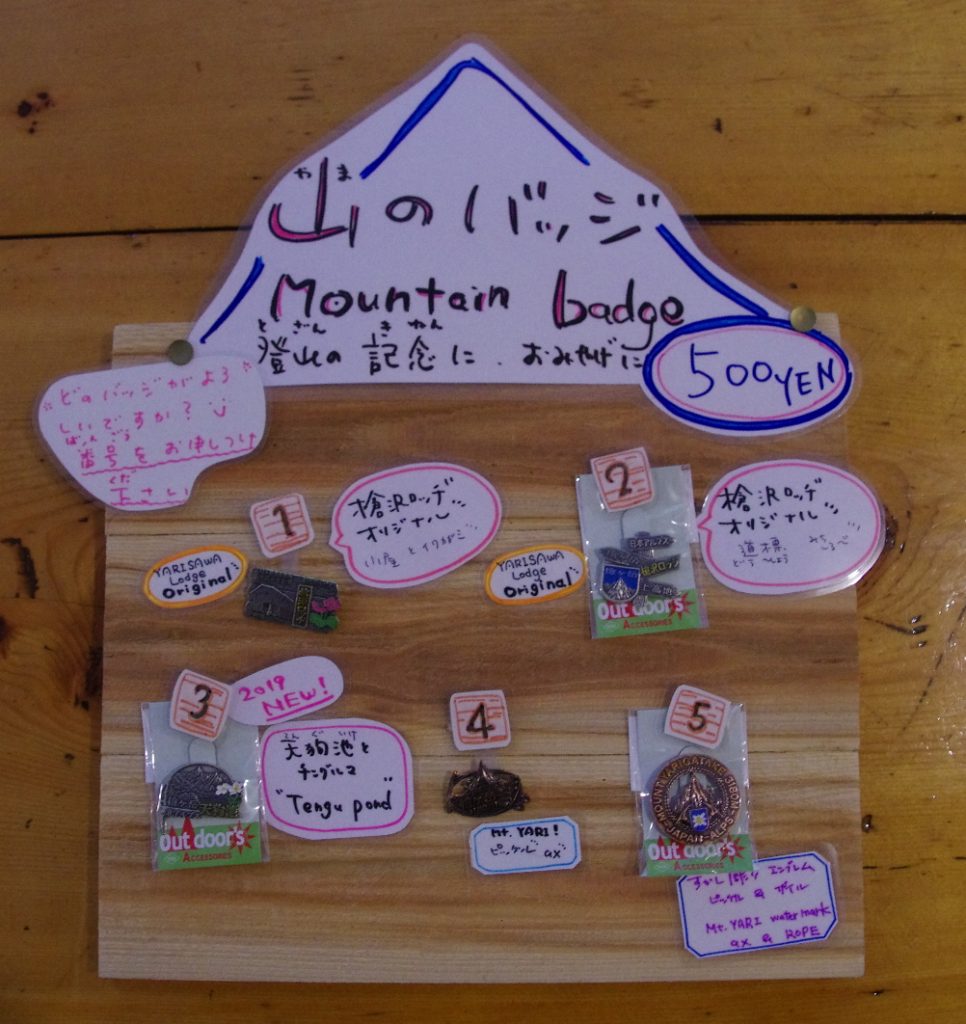 やま
山のバッジ
Mountain badge
とざん きねん
登山の記念に、おみやげに
500YEN
どのバッジがよろ
しいですか?
ばんごう
番号をお申しつけ
くだ
下さい
1
YARISAWA
Lodge
Original
槍沢ロッヂ
オリジナル
小屋とイワカガミ
2
YARISAWA
Lodge
Original
槍沢ロッヂ
オリジナル
道標 みちしるべ
どうひょう
日本アルプス
槍沢ロッヂ
上高地
Outdoor's
ACCESSORIES
3
2019
NEW!
てんぐいけ
天狗池と
チングルマ
"Tengu pond"
Outdoor's
ACCESSORIES
4
Mt. YARI!
ピッケル ax
5
MOUNT.YARIGATAKE・3180M
JAPAN-ALPS
Outdoor's
ACCESSORIES
すかしぼり エンブレム
ピッケル & ザイル
Mt. YARI watermark
ax & ROPE